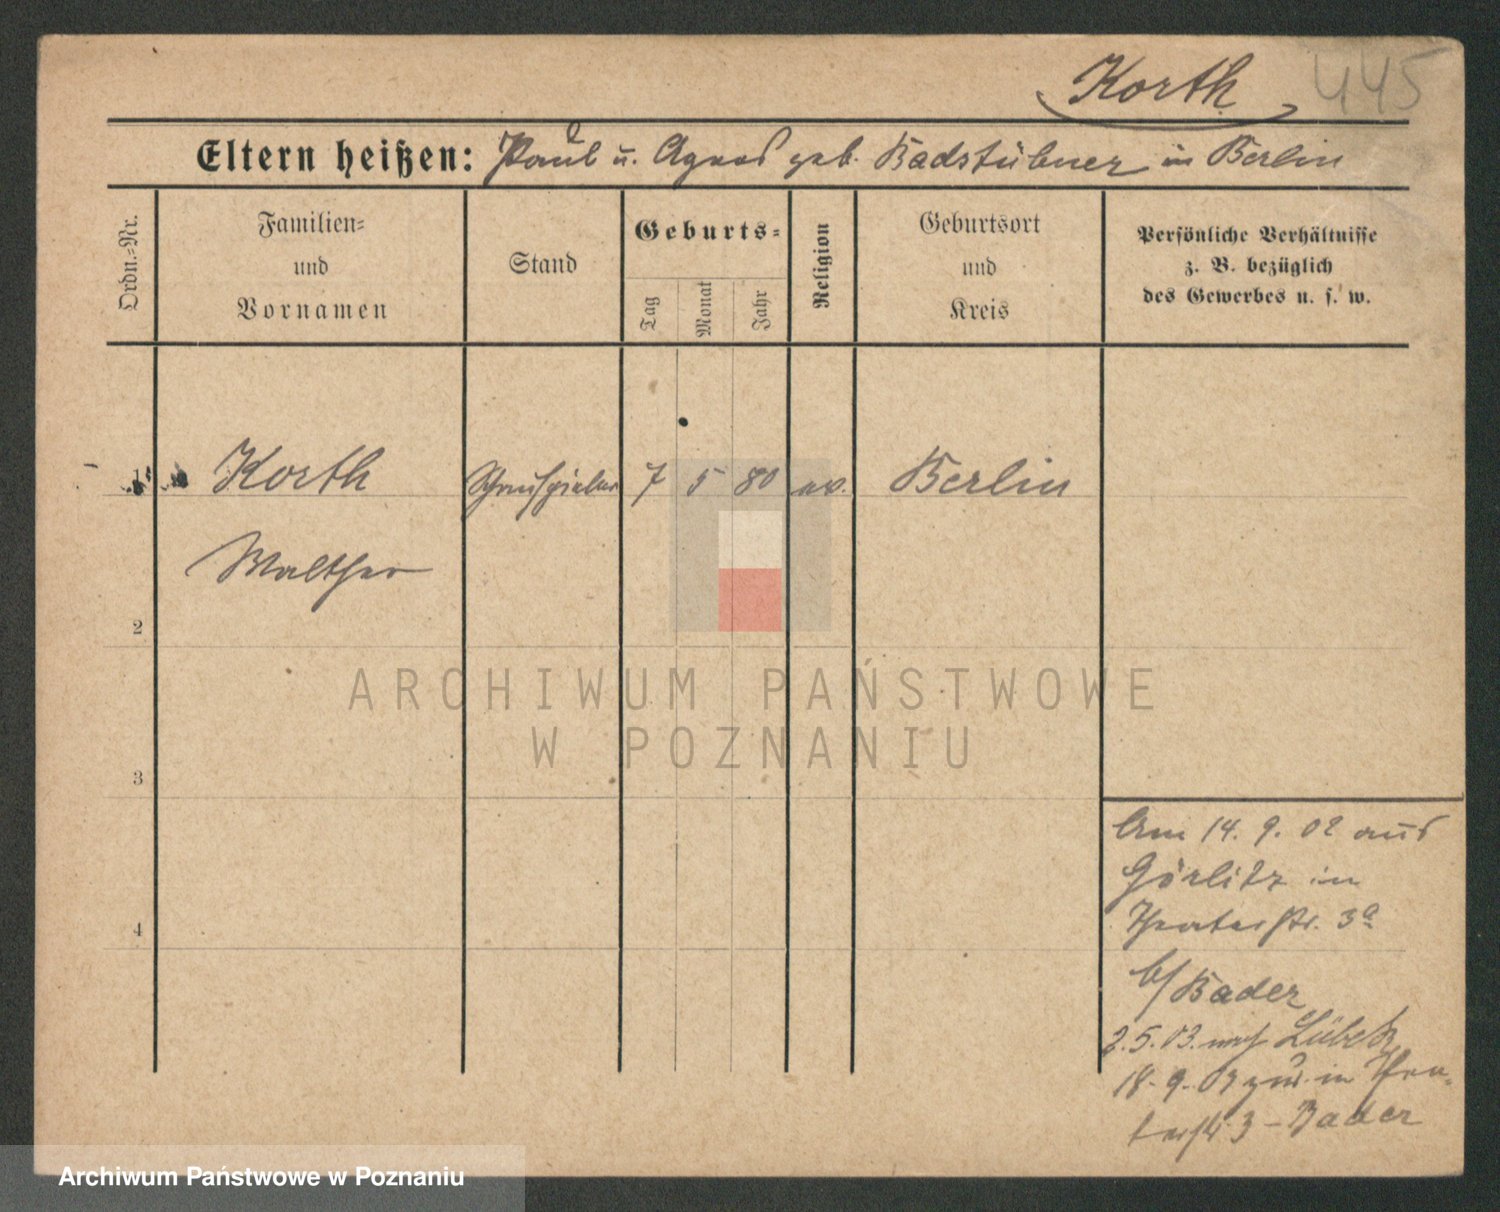 Korth 445
Eltern heißen: Paul u. Agnes geb. Badstübner in Berlin
Ordn.-Nr.
Familien-
und
Vornamen
Stand
Geburts-
Tag
Monat
Jahr
Religion
Geburtsort
und
Kreis
Persönliche Verhältnisse
z. B. bezüglich
des Gewerbes u. s. w.
1
Korth
Schauspieler
7
5
80
ev.
Berlin
Walther
2
3
4
Am 14. 9. 02 aus
Görlitz in
Theaterstr. 3a
b/ Bader
2.5.03. nach Lübeck
18. 9. 03 zur. in Thea-
terstr 3 – Bader
ARCHIWUM PAŃSTWOWE
W POZNANIU
Archiwum Państwowe w Poznaniu